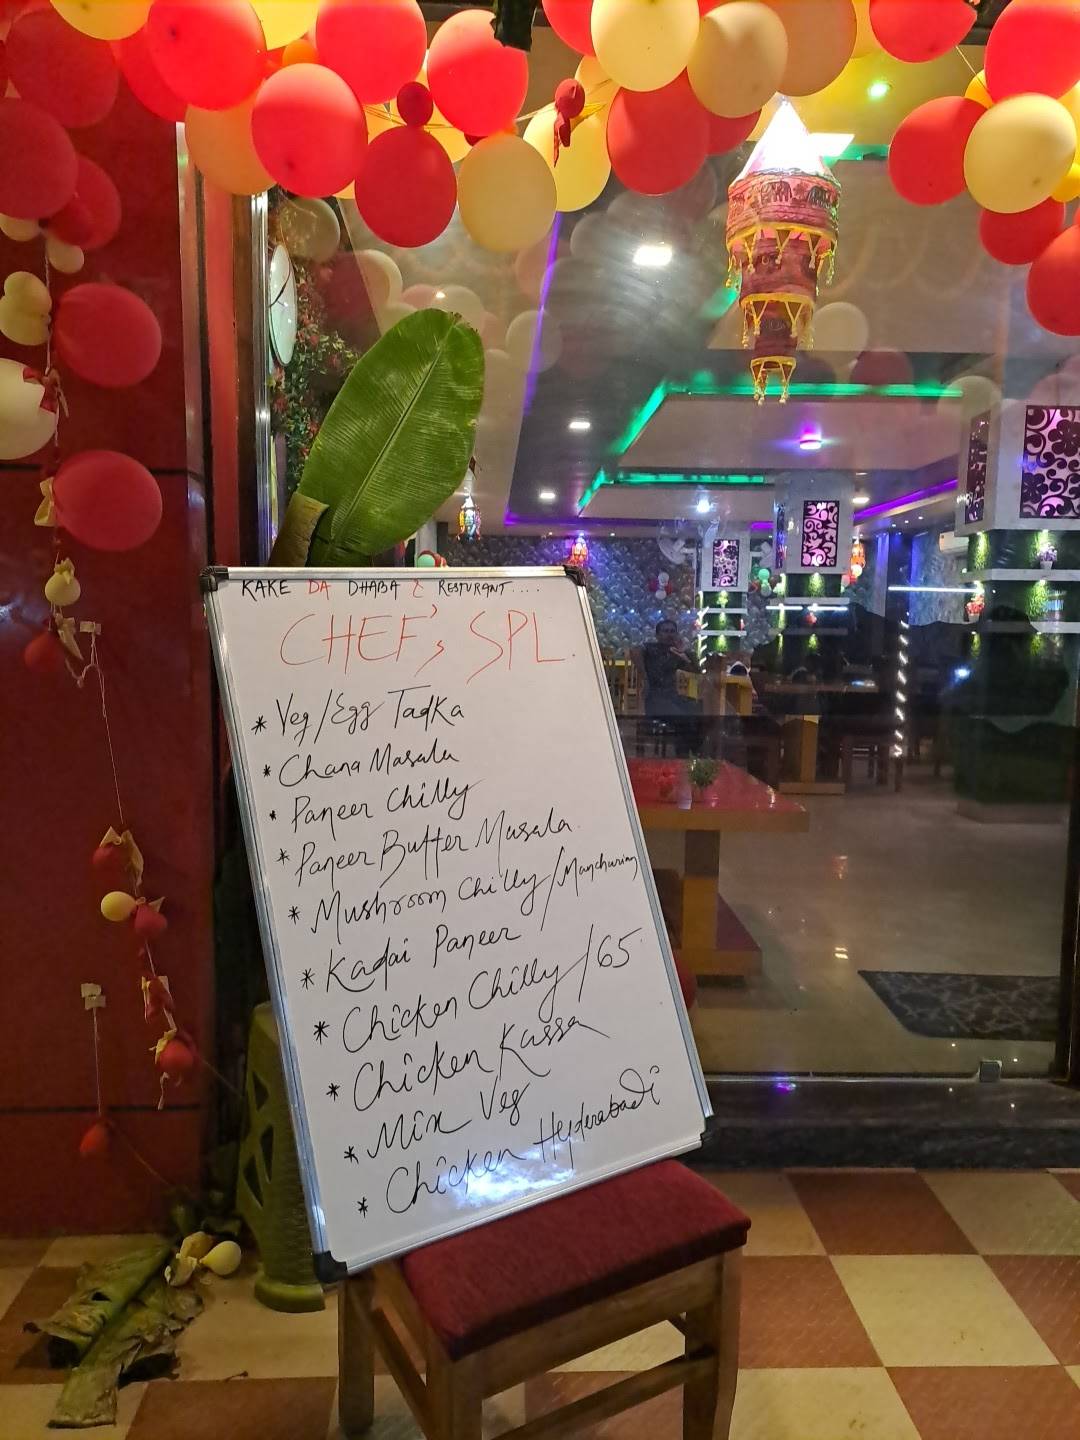 KAKE DA DHABA & RESTURANT....
CHEF's SPL.
* Veg/Egg Tadka
* Chana Masala
* Paneer Chilly
* Paneer Butter Masala.
* Mushroom Chilly/Manchurian
* Kadai Paneer
* Chicken Chilly/65
* Chicken Kassa
* Mix Veg
* Chicken Hyderabadi